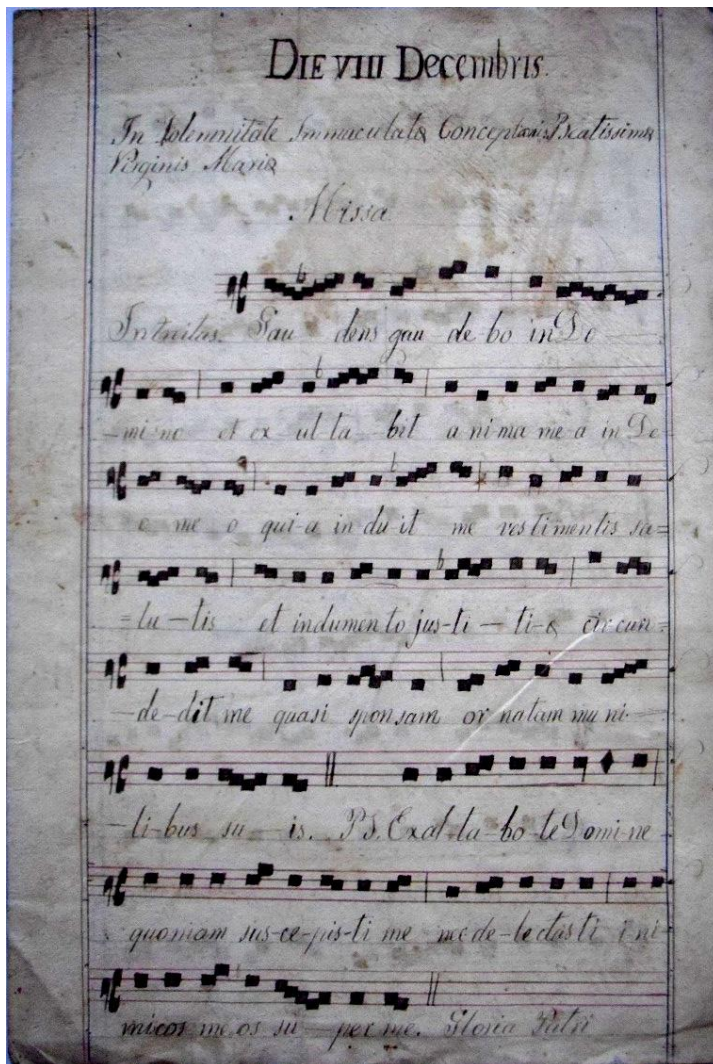 DIE VIII Decembris.
In Solemnitate Immaculatæ Conceptionis Beatissimæ
Virginis Mariæ
Missa
Introitus. Gau dens gau de bo in Do
-mi-no et ex ul-ta-bit a ni ma me-a in De-
o me o qui-a in du-it me vestimentis sa=
=lu-tis et indumento jus-ti-ti-æ circun=
-de-dit me quasi sponsam or natam mu ni-
-li-bus su-is. Ps. Exal-ta-bo-te Domi-ne
quoniam sus-ce-pis-ti me nec de-lectasti i ni
micos me os su per me. Gloria Patri